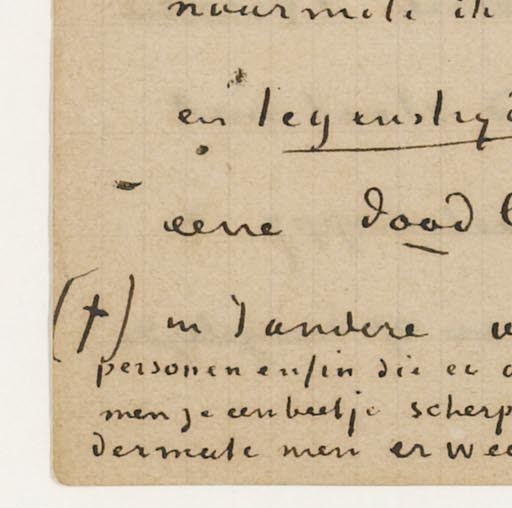 naarmate ik
en tegenstryd
eene dood
(†) in 't andere
personen enfin die er
men ze een beetje scherp
dermate men er wee